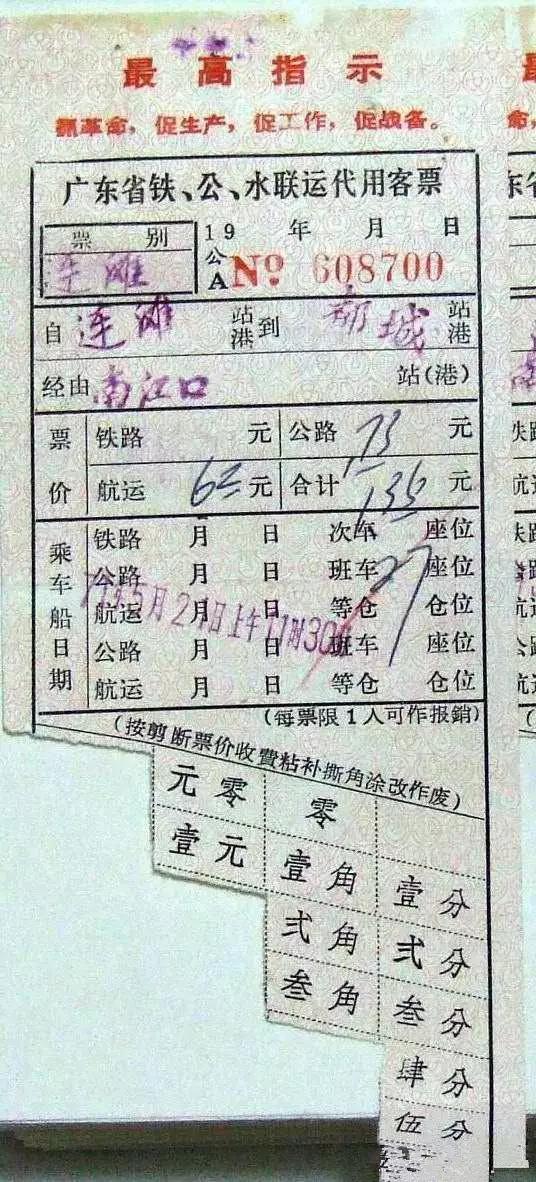 最高指示
抓革命，促生产，促工作，促战备。
广东省铁、公、水联运代用客票
票别 19 年 月 日
连滩 公A No 608700
自 连滩 站港 到 都城 站港
经由 南江口 站(港)
票价 铁路 元 公路 73 元
航运 62 元 合计 135 元
乘车船日期
铁路 月 日 次车 座位
公路 月 日 班车 27 座位
航运 月 日 等仓 仓位
5月2 日上午11时30
公路 月 日 班车 座位
航运 月 日 等仓 仓位
(每票限1人可作报銷)
(按剪断票价收費粘补撕角涂改作废)
元零 零
壹元 壹角 壹分
弍角 弍分
叁角 叁分
肆分
伍分